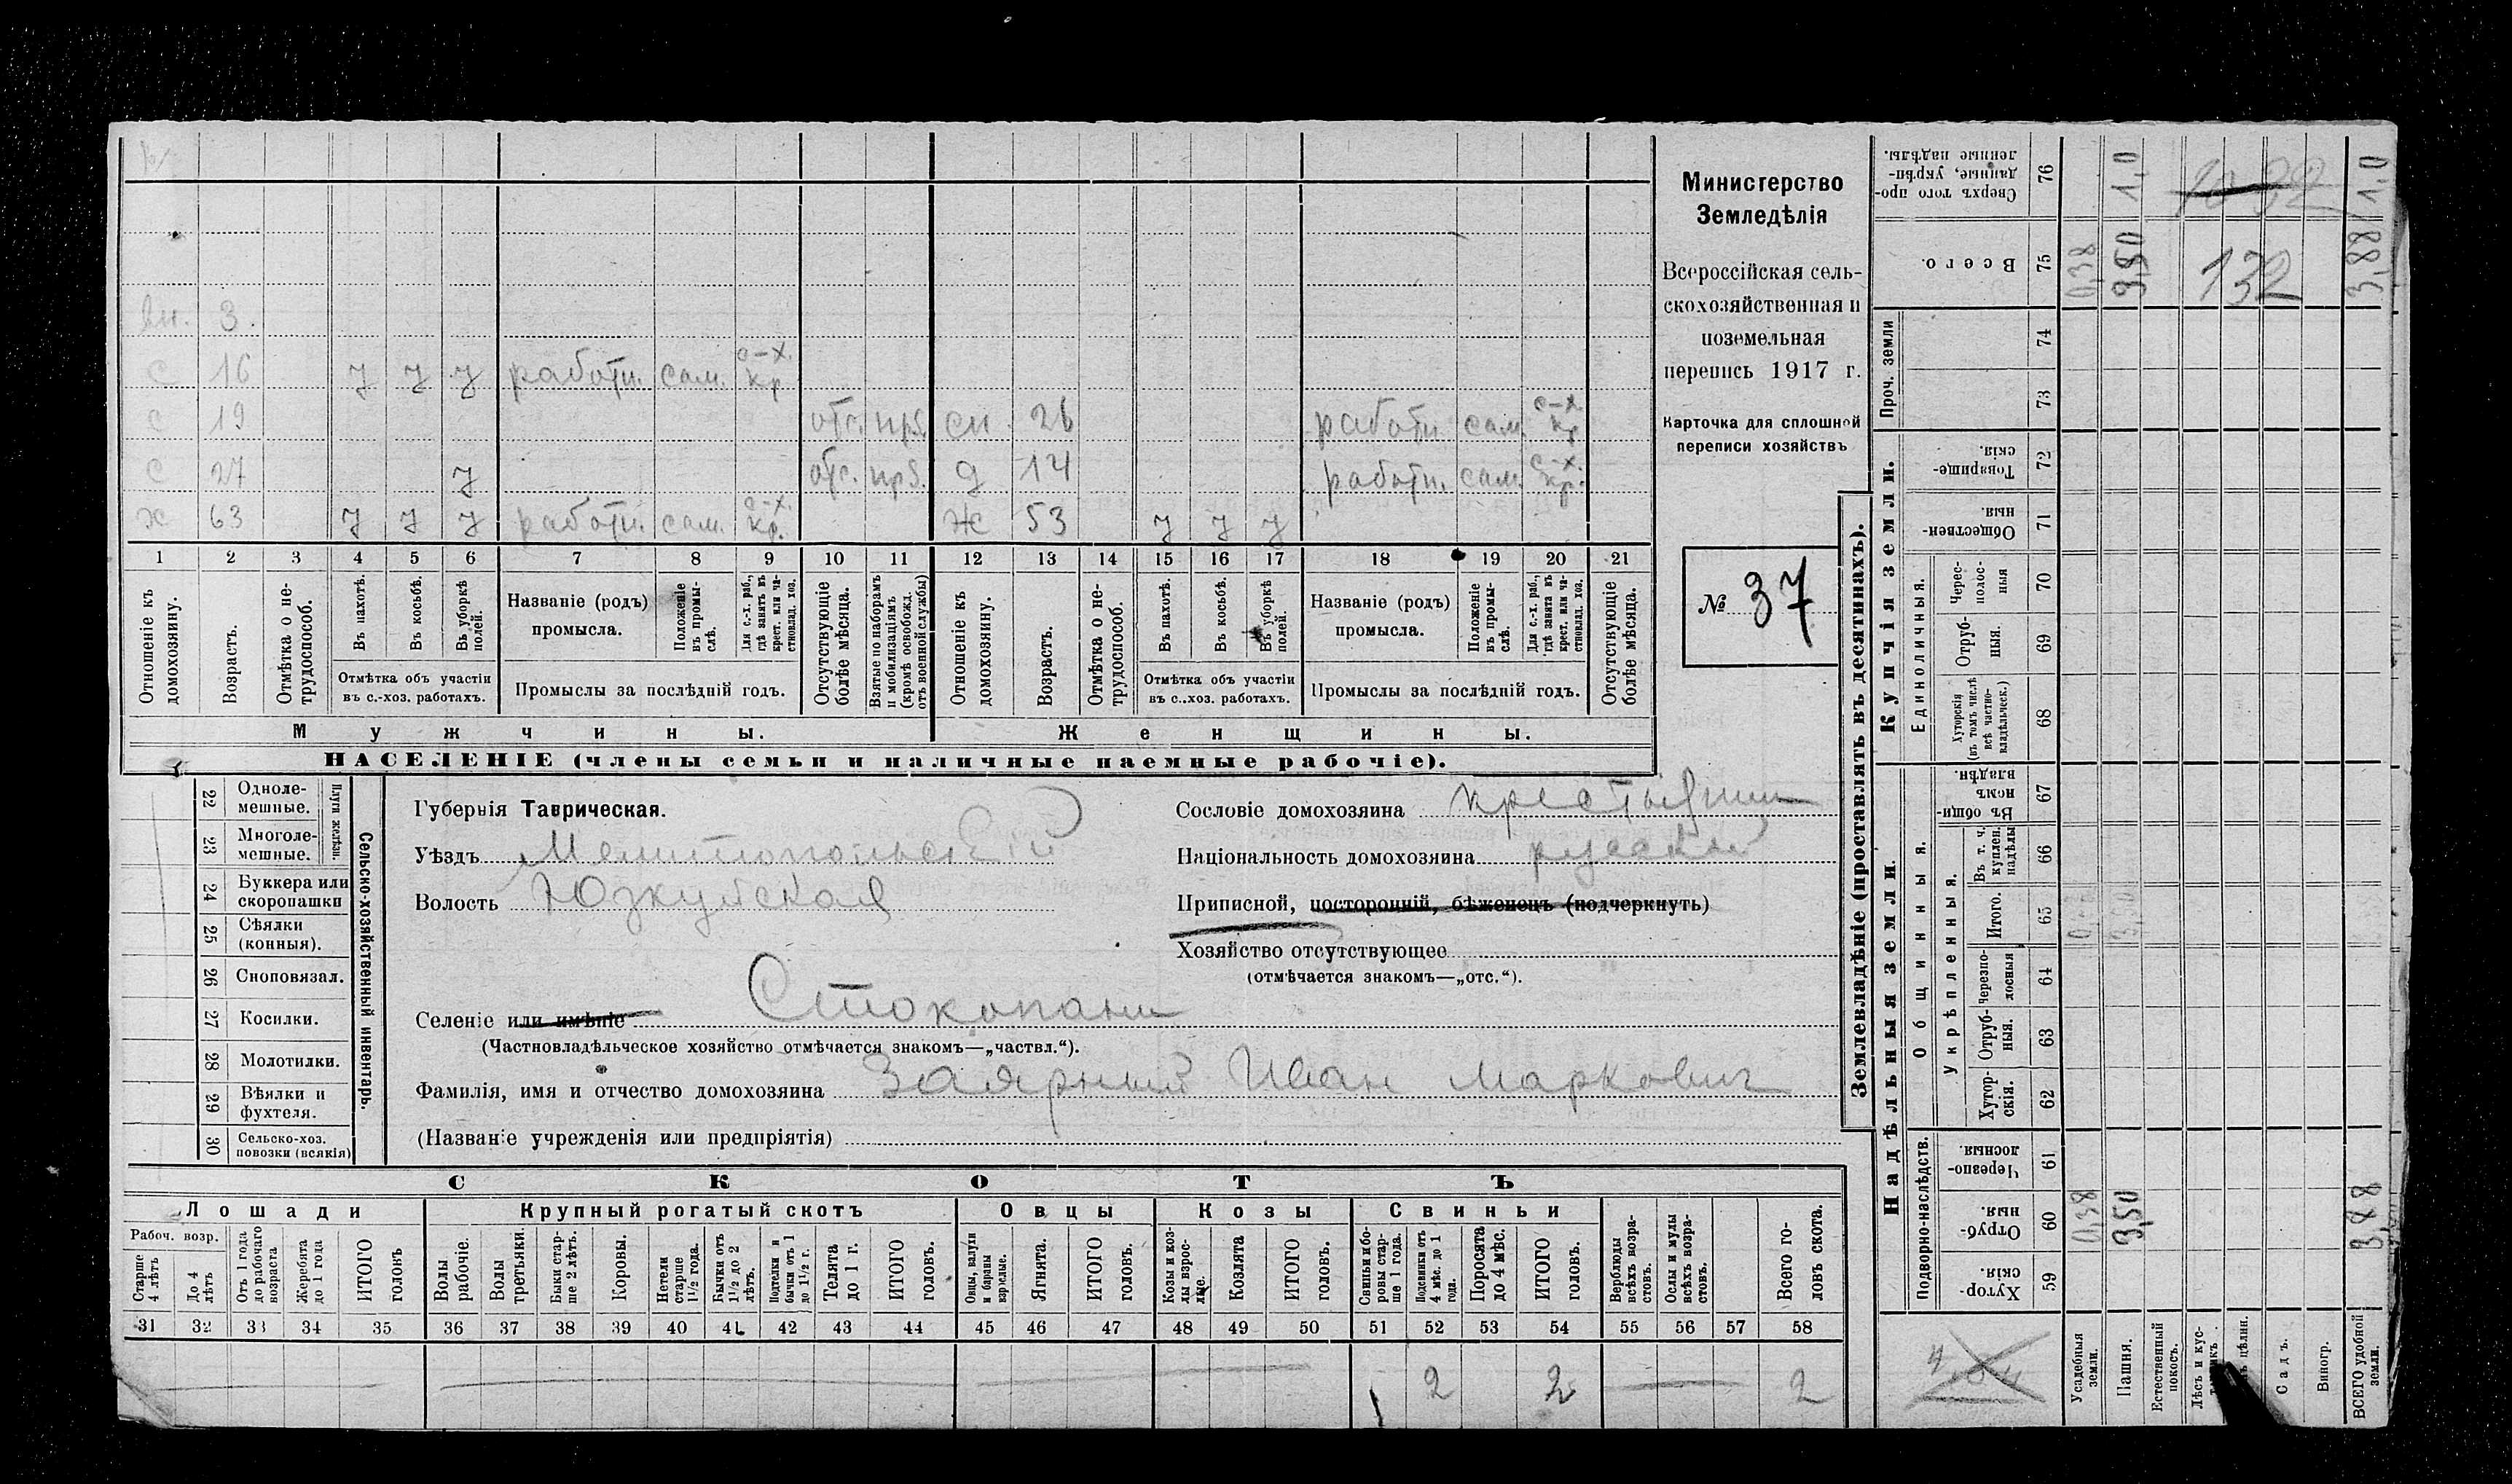 вн. 3.
с 16 У У У работн. сам. с-х. кр.
с 19 отс. прз. сн. 26 работн. сам. с-х. кр.
с 27 У отс. прз. д 14 работн. сам. с-х. кр.
х 63 У У У работн. сам. с-х. кр. Ж 53 У У У
1 2 3 4 5 6 7 8 9 10 11 12 13 14 15 16 17 18 19 20 21
Отношеніе къ домохозяину.
Возрастъ.
Отмѣтка о не-
трудоспособ.
Въ пахотѣ.
Въ косьбѣ.
Въ уборкѣ
полей.
Отмѣтка объ участіи
въ с.-хоз. работахъ.
Названіе (родъ)
промысла.
Положеніе
въ промы-
слѣ.
Для с.-х. раб.,
гдѣ занятъ въ
крест. или ча-
стновлад. хоз.
Промыслы за послѣдній годъ.
Отсутствующіе
болѣе мѣсяца.
Взятые по наборамъ
и мобилизаціямъ
(кромѣ освобожд.
отъ военной службы)
Отношеніе къ
домохозяину.
Возрастъ.
Отмѣтка о не-
трудоспособ.
Въ пахотѣ.
Въ косьбѣ.
Въ уборкѣ
полей.
Отмѣтка объ участіи
въ с..хоз. работахъ.
Названіе (родъ)
промысла.
Положеніе
въ промы-
слѣ.
Для с.-х. раб.,
гдѣ занята въ
крест. или ча-
стновлад. хоз.
Промыслы за послѣдній годъ.
Отсутствующіе
болѣе мѣсяца.
Мужчины.
Женщины.
НАСЕЛЕНІЕ (члены семьи и наличные наемные рабочіе).
Министерство
Земледѣлія
Всероссійская сель-
скохозяйственная и
поземельная
перепись 1917 г.
Карточка для сплошной
переписи хозяйствъ
№ 37
22 Одноле-
мешные.
23 Многоле-
мешные.
Плуги желѣзн.
24 Буккера или
скоропашки
25 Сѣялки
(конныя).
26 Сноповязал.
27 Косилки.
28 Молотилки.
29 Вѣялки и
фухтеля.
30 Сельско-хоз.
повозки (всякія)
Сельско-хозяйственный инвентарь.
Губернія Таврическая.
Уѣздъ Мелитопольскій
Волость Юзкуйская
Селеніе или имѣніе Стокопани
(Частновладѣльческое хозяйство отмѣчается знакомъ—„частвл.“).
Фамилія, имя и отчество домохозяина Заярный Иван Маркович
(Названіе учрежденія или предпріятія)
Сословіе домохозяина
Національность домохозяина русский
Приписной, посторонній, бѣженецъ (подчеркнуть)
Хозяйство отсутствующее
(отмѣчается знакомъ—„отс.“).
СКОТЪ
Лошади
Крупный рогатый скотъ
Овцы
Козы
Свиньи
Рабоч. возр.
Старше
4 лѣтъ
До 4
лѣтъ
Отъ 1 года
до рабочаго
возраста
Жеребята
до 1 года
ИТОГО
головъ
Волы
рабочіе.
Волы
третьяки.
Быки стар-
ше 2 лѣтъ.
Коровы.
Нетели
старше
1½ года.
Бычки отъ
1½ до 2
лѣтъ.
Подтелки и
бычки отъ 1
до 1½ г.
Телята
до 1 г.
ИТОГО
головъ.
Овцы, валухи
и бараны
взрослые.
Ягнята.
ИТОГО
головъ.
Козы и коз-
лы взрос-
лые.
Козлята
ИТОГО
головъ.
Свиньи и бо-
ровы стар-
ше 1 года.
Подсвинки отъ
4 мѣс. до 1
года.
Поросята
до 4 мѣс.
ИТОГО
головъ.
Верблюды
всѣхъ возра-
стовъ.
Ослы и мулы
всѣхъ возра-
стовъ.
Всего го-
ловъ скота.
31 32 33 34 35 36 37 38 39 40 41 42 43 44 45 46 47 48 49 50 51 52 53 54 55 56 57 58
2 2 2
Землевладѣніе (проставлять въ десятинахъ).
Купчія земли.
Надѣльныя земли.
Сверхъ того про-
данные, укрѣп-
ленные надѣлы.
76 1,0 1,0
Всего.
75 0,38 3,50 132 3,88
Проч. земли
74
73
Товарище-
скія.
72
Обществен-
ныя.
71
Единоличныя.
Черес-
полос-
ныя
70
Отруб-
ныя.
69
Хуторскія
(въ томъ числѣ
всѣ частно-
владѣльческ.)
68
Общинныя.
Въ общи-
номъ
владѣн.
67
Укрѣпленныя.
Въ т. ч.
куплен.
надѣлы
66
Итого.
65
Черезпо-
лосныя
64
Отруб-
ныя.
63
Хутор-
скія.
62
Подворно-наслѣдств.
Черезпо-
лосныя
61
Отруб-
ныя.
60 0,38 3,50 3,88
Хутор-
скія.
59
Усадебныя
земли.
Пашня.
Естественный
покосъ.
Лѣсъ и кус-
Садъ.
Виногр.
ВСЕГО удобной
земли.